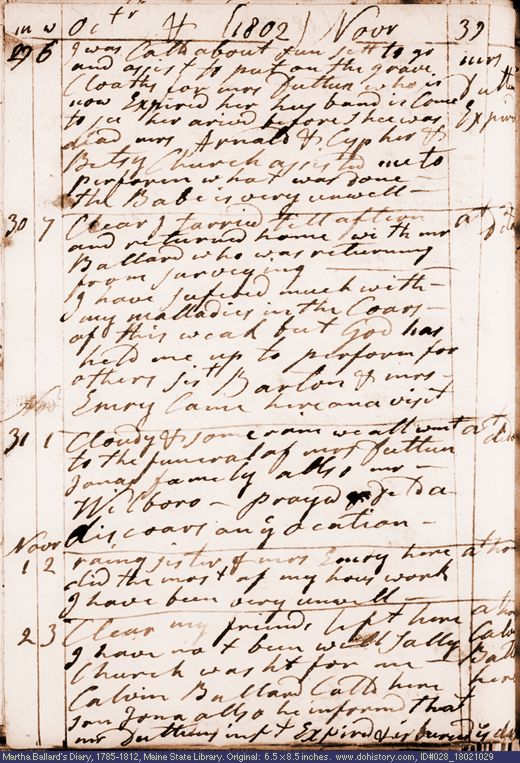 m w Octr & [1802] Novr 39
29 6 I was Calld about sun sett to go mrs
and assist to put on the Grave Duttun
Cloaths for mrs Duttun who is Expird
now Expired her husband is Come
to see her arivd before shee was
dead mrs Arnald & Cypher &
Betsy Church assisted me to
perform what was done
the Babe is very unwell
30 7 Clear I tarried till aftern at
and returned home with mr
Ballard who was returning
from surveying
I have sufered much with
my malladies in the Coars
of this weak but God has
held me up to perform for
others sist Barton & mrs
Emry Came here on a visit
31 1 Cloudy & some rain we all went at
to the funeral of mrs Duttun
Jonas family allso mr
Wilboro prayd
discoars on ye ocation
Novr
1 2 raing sister & mrs Emery here at home
did the most of my hous work
I have been very unwell
2 3 Clear my friends left here at home
I have not been well Sally Calvin
Church washt for me Ballard
Calvin Ballard Calld here here
son Jona allso he informd that
mr Duttuns inft Expird & is buried
Martha Ballard's Diary, 1785-1812, Maine State Library. Original: 6.5 x 8.5 inches. www.dohistory.com, ID#028_18021029